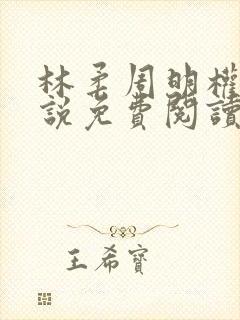 林柔周明權
說免費閱讀
王希寶